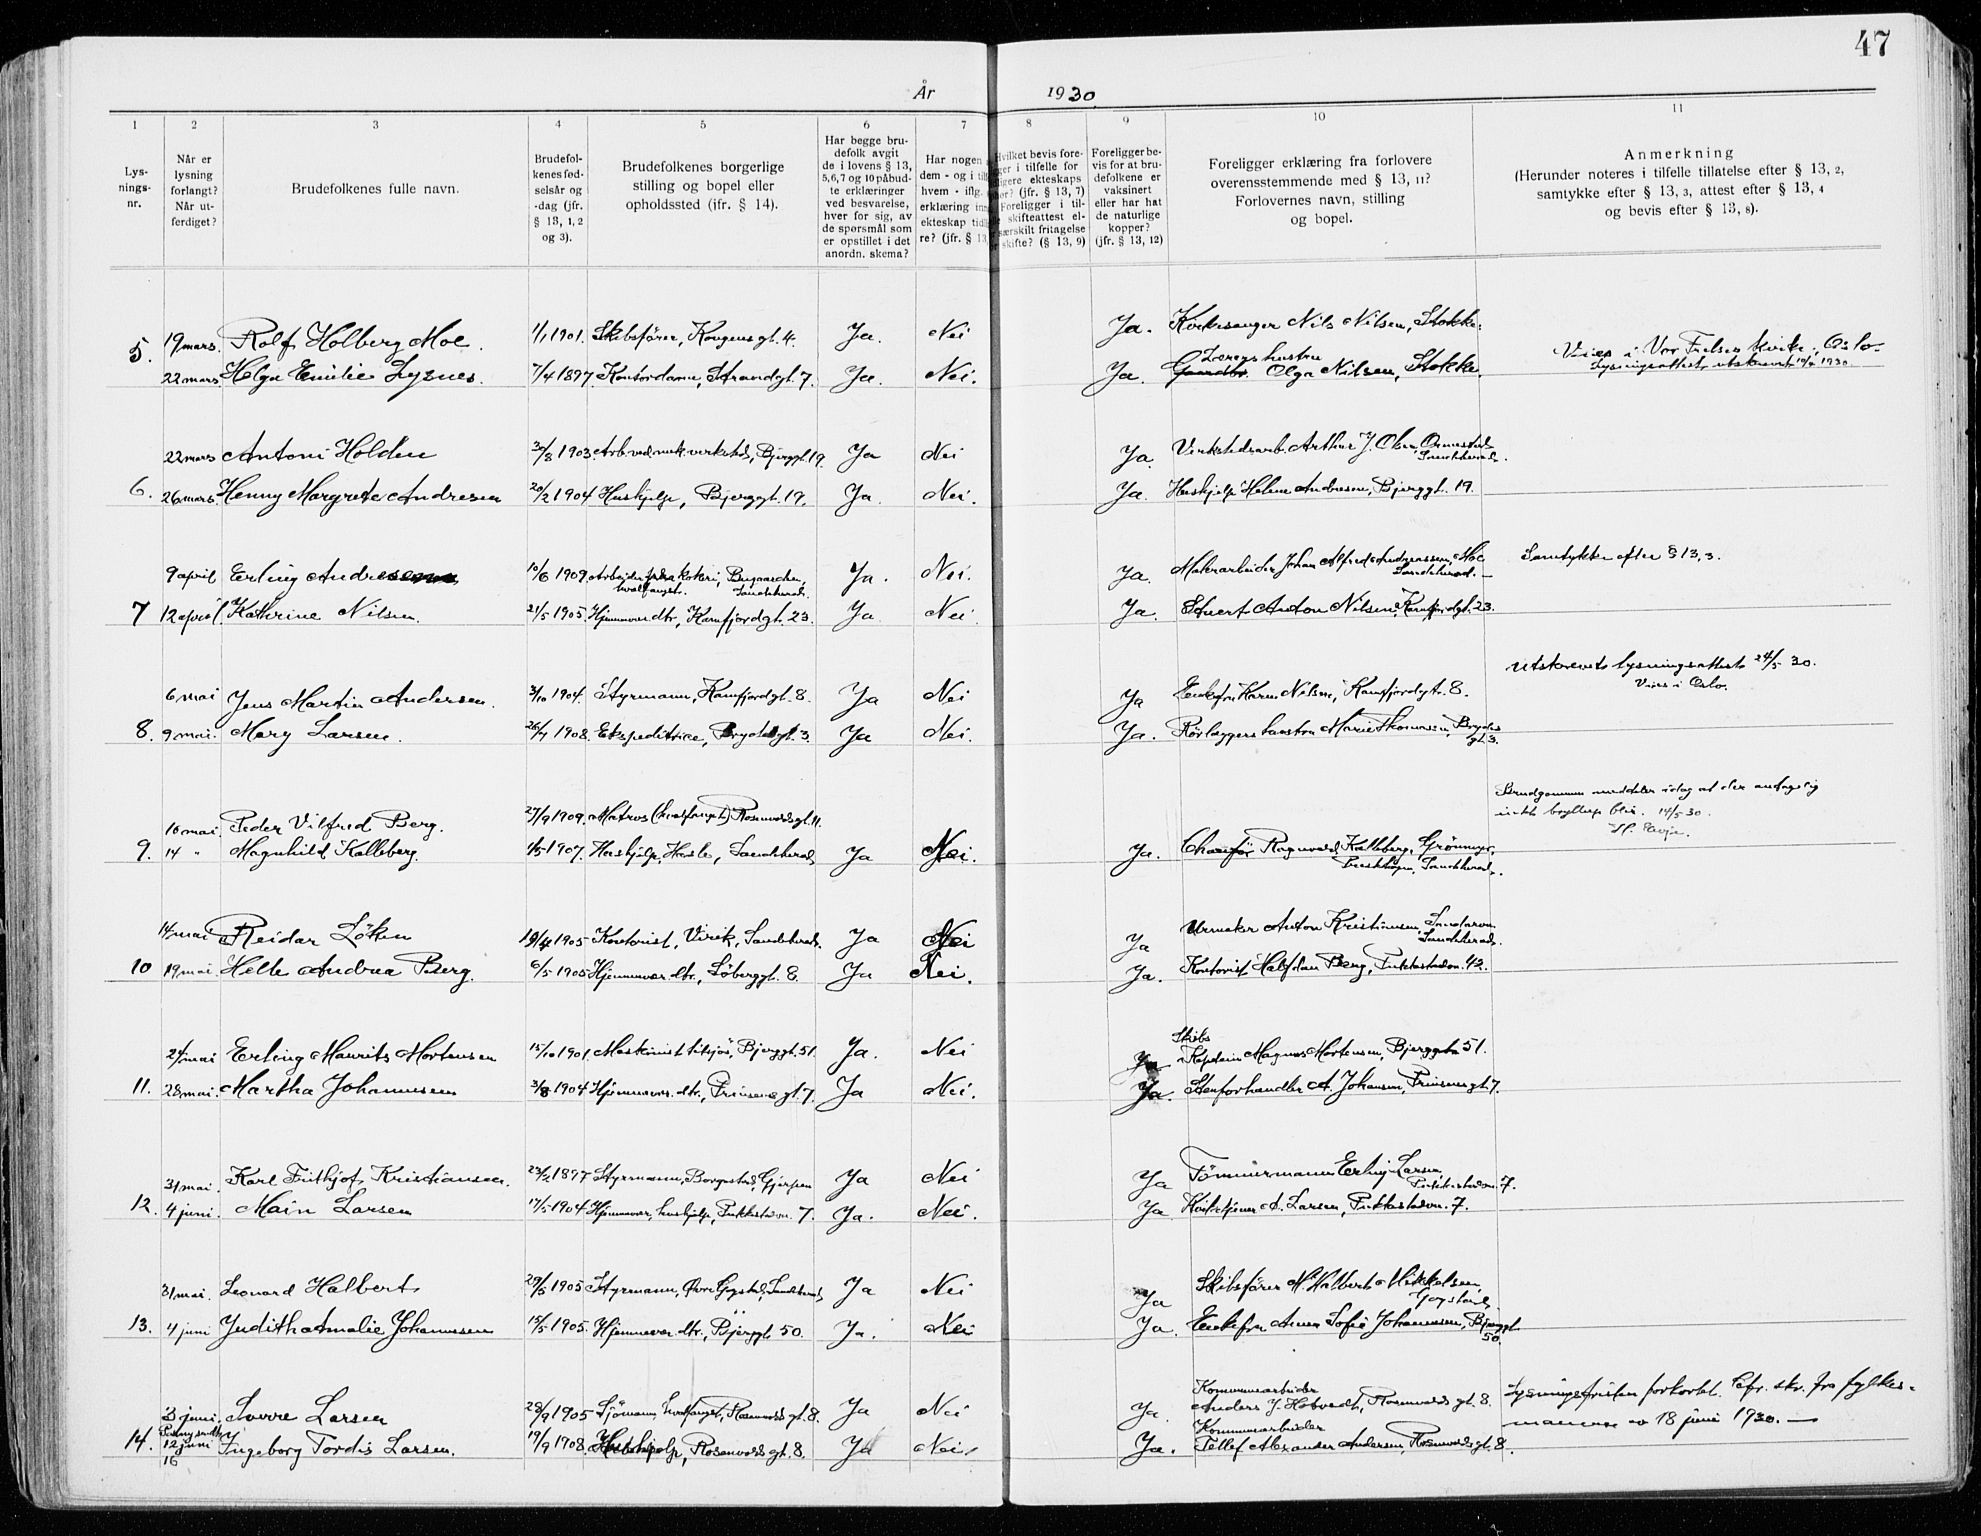 47
År 1930
1 2 3 4 5 6 7 8 9 10 11
Lys-
nings-
nr.
Når er
lysning
forlangt?
Når ut-
ferdiget?
Brudefolkenes fulle navn.
Brudefol-
kenes fød-
selsår og
-dag (jfr.
§ 13, 1, 2
og 3).
Brudefolkenes borgerlige
stilling og bopel eller
opholdssted (jfr. § 14).
Har begge bru-
defolk avgit
de i lovens § 13,
5, 6, 7 og 10 påbud-
te erklæringer
ved besvarelse,
hver for sig, av
de spørsmål som
er opstillet i det
anordn. skema?
Har nogen
dem - og i til
hvem - iflg.
erklæring inn
ekteskap tidl
re? (jfr. § 13
Hvilket bevis fore-
ger i tilfelle for
ligere ekteskaps
hør? (jfr. § 13, 7)
Foreligger i til-
le skifteattest el-
særskilt fritagelse
r skifte? (§ 13, 9)
Foreligger be-
vis for at bru-
defolkene er
vaksinert
eller har hat
de naturlige
kopper?
(jfr. § 13, 12)
Foreligger erklæring fra forlovere
overensstemmende med § 13, 11?
Forlovernes navn, stilling
og bopel.
Anmerkning
(Herunder noteres i tilfelle tillatelse efter § 13, 2,
samtykke efter § 13, 3, attest efter § 13, 4
og bevis efter § 13, 8).
19 mars. Rolf Holberg Moe. 1/1 1901. Skibsfører, Kongensgt. 4. Ja. Nei Ja. Kirkesanger Nils Nilsen, Stokke.
5. 22 mars Helga Emilie Lysnes. 7/4 1897 Kontordame, Strandgt. 7. Ja. Nei. Ja. Olga Nilsen, Stokke.
Vies i Vor Frelsers kirke, Oslo.
Lysningsattest utskrevet 10/4 1930.
22 mars Antoni Holden 30/8 1903. Arb. ved mek. verksted, Bjerggt. 19. Ja Nei Ja. Verkstedsarb. Arthur J. Olsen, Ormestad, Sandeherad.
6. 26 mars. Henny Margrete Andresen 20/2 1904 Hushjelp, Bjerggt. 19. Ja. Nei. Ja. Hushjelp Helene Andresen, Bjerggt. 19.
9 april Erling Andresen 10/6 1909. Ja. Nei. Ja. Malerarbeider Johan Alfred Andreassen, Moe Sandeherad. Samtykke efter § 13, 3.
7 12 april Kathrine Nilsen. 21/5 1905. Hjemmev. dtr., Kamfjordgt. 23. Ja Nei. Ja. Stuert Anton Nilsen, Kamfjordgt. 23.
6 mai Jens Martin Andersen. 3/10 1904. Styrmann, Kamfjordgt. 8. Ja Nei Ja Enkefru Karen Nilsen, Kamfjordgt. 8.
Utskrevet lysningsattest 24/5 30.
Vies i Oslo.
8. 9 mai. Mary Larsen. 26/7 1908. Ekspeditrice, Brydesgt. 3. Ja Nei. Ja. Rørlæggers hustru Marie Thomassen, Brydes gt. 3.
10 mai Peder Vilfred Berg. 27/9 1909. Matros (hvalfangst) Rosenvoldsgt. 11.
9. 14 " Magnhild Kalleberg. 1/5 1907. Hushjelp, Hasle, Sandeherad, Ja Nei. Ja. Chauffør Ragnvald Kalleberg, Grønnmyr, Sandeherad.
Brudgommen meddeler idag at der antagelig
ikke bryllup blir. 14/5 30.
14 mai Reidar Løken 19/4 1905 Kontorist, Virik, Sandeherad. Ja Nei Ja Urmaker Anton Kristiansen, Sandeherad.
10 19 mai Helle Andrea Berg. 6/5 1905 Hjemmev. dtr., Søberggt. 8. Ja Nei. Ja. Kontorist Halfdan Berg, 42.
24 mai Erling Maurits Mortensen 15/10 1901. Maskinist tilsjøs, Bjerggt. 51. Ja. Nei Ja Skibs Kaptein Magnus Mortensen, Bjerggt. 51.
11. 28 mai. Martha Johannessen 3/8 1904 Hjemmev. dtr., Prinsensgt. 7. Ja Nei. Ja. Stenforhandler A. Johansen, Prinsensgt. 7.
31 mai. Karl Frithjof Kristiansen. 23/2 1897 Styrmann, Borgestad, Gjerpen Ja Nei Ja Tømmermann Erling Larsen 7.
12. 4 juni. Main Larsen 17/5 1904 Hjemmev., hushjelp, 7. Ja. Nei. Ja Kirketjener A. Larsen, 7.
31 mai. Leonard Halbert 29/5 1905 Styrmann, Øvre Gogstad, Sandeherad, Ja Nei Ja Skibsfører M. Halbert Mikkelsen, Gogstad,
13. 4 juni Judith Amalie Johannessen 15/5 1905. Hjemmev. dtr., Bjerggt. 50. Ja. Nei Ja. Enkefru Anna Sofie Johannessen, Bjerggt. 50.
3 juni. Sverre Larsen 28/9 1905 Sjømann, hvalfangst, Rosenvoldsgt. 8. Ja Nei Ja. Kommunearbeider Anders J. Hotvedt, Rosenvoldsgt. 8.
Lysningsfristen forkortet. Cfr. skr. fra fylkes-
mannen av 18 juni 1930. —
14. 12 juni 16 Ingeborg Tordis Larsen. 19/9 1908. Hushjelp, Rosenvoldsgt. 8. Ja Nei. Ja. Kommunearbeider Tellef Alexander Andersen, Rosenvoldsgt. 8.